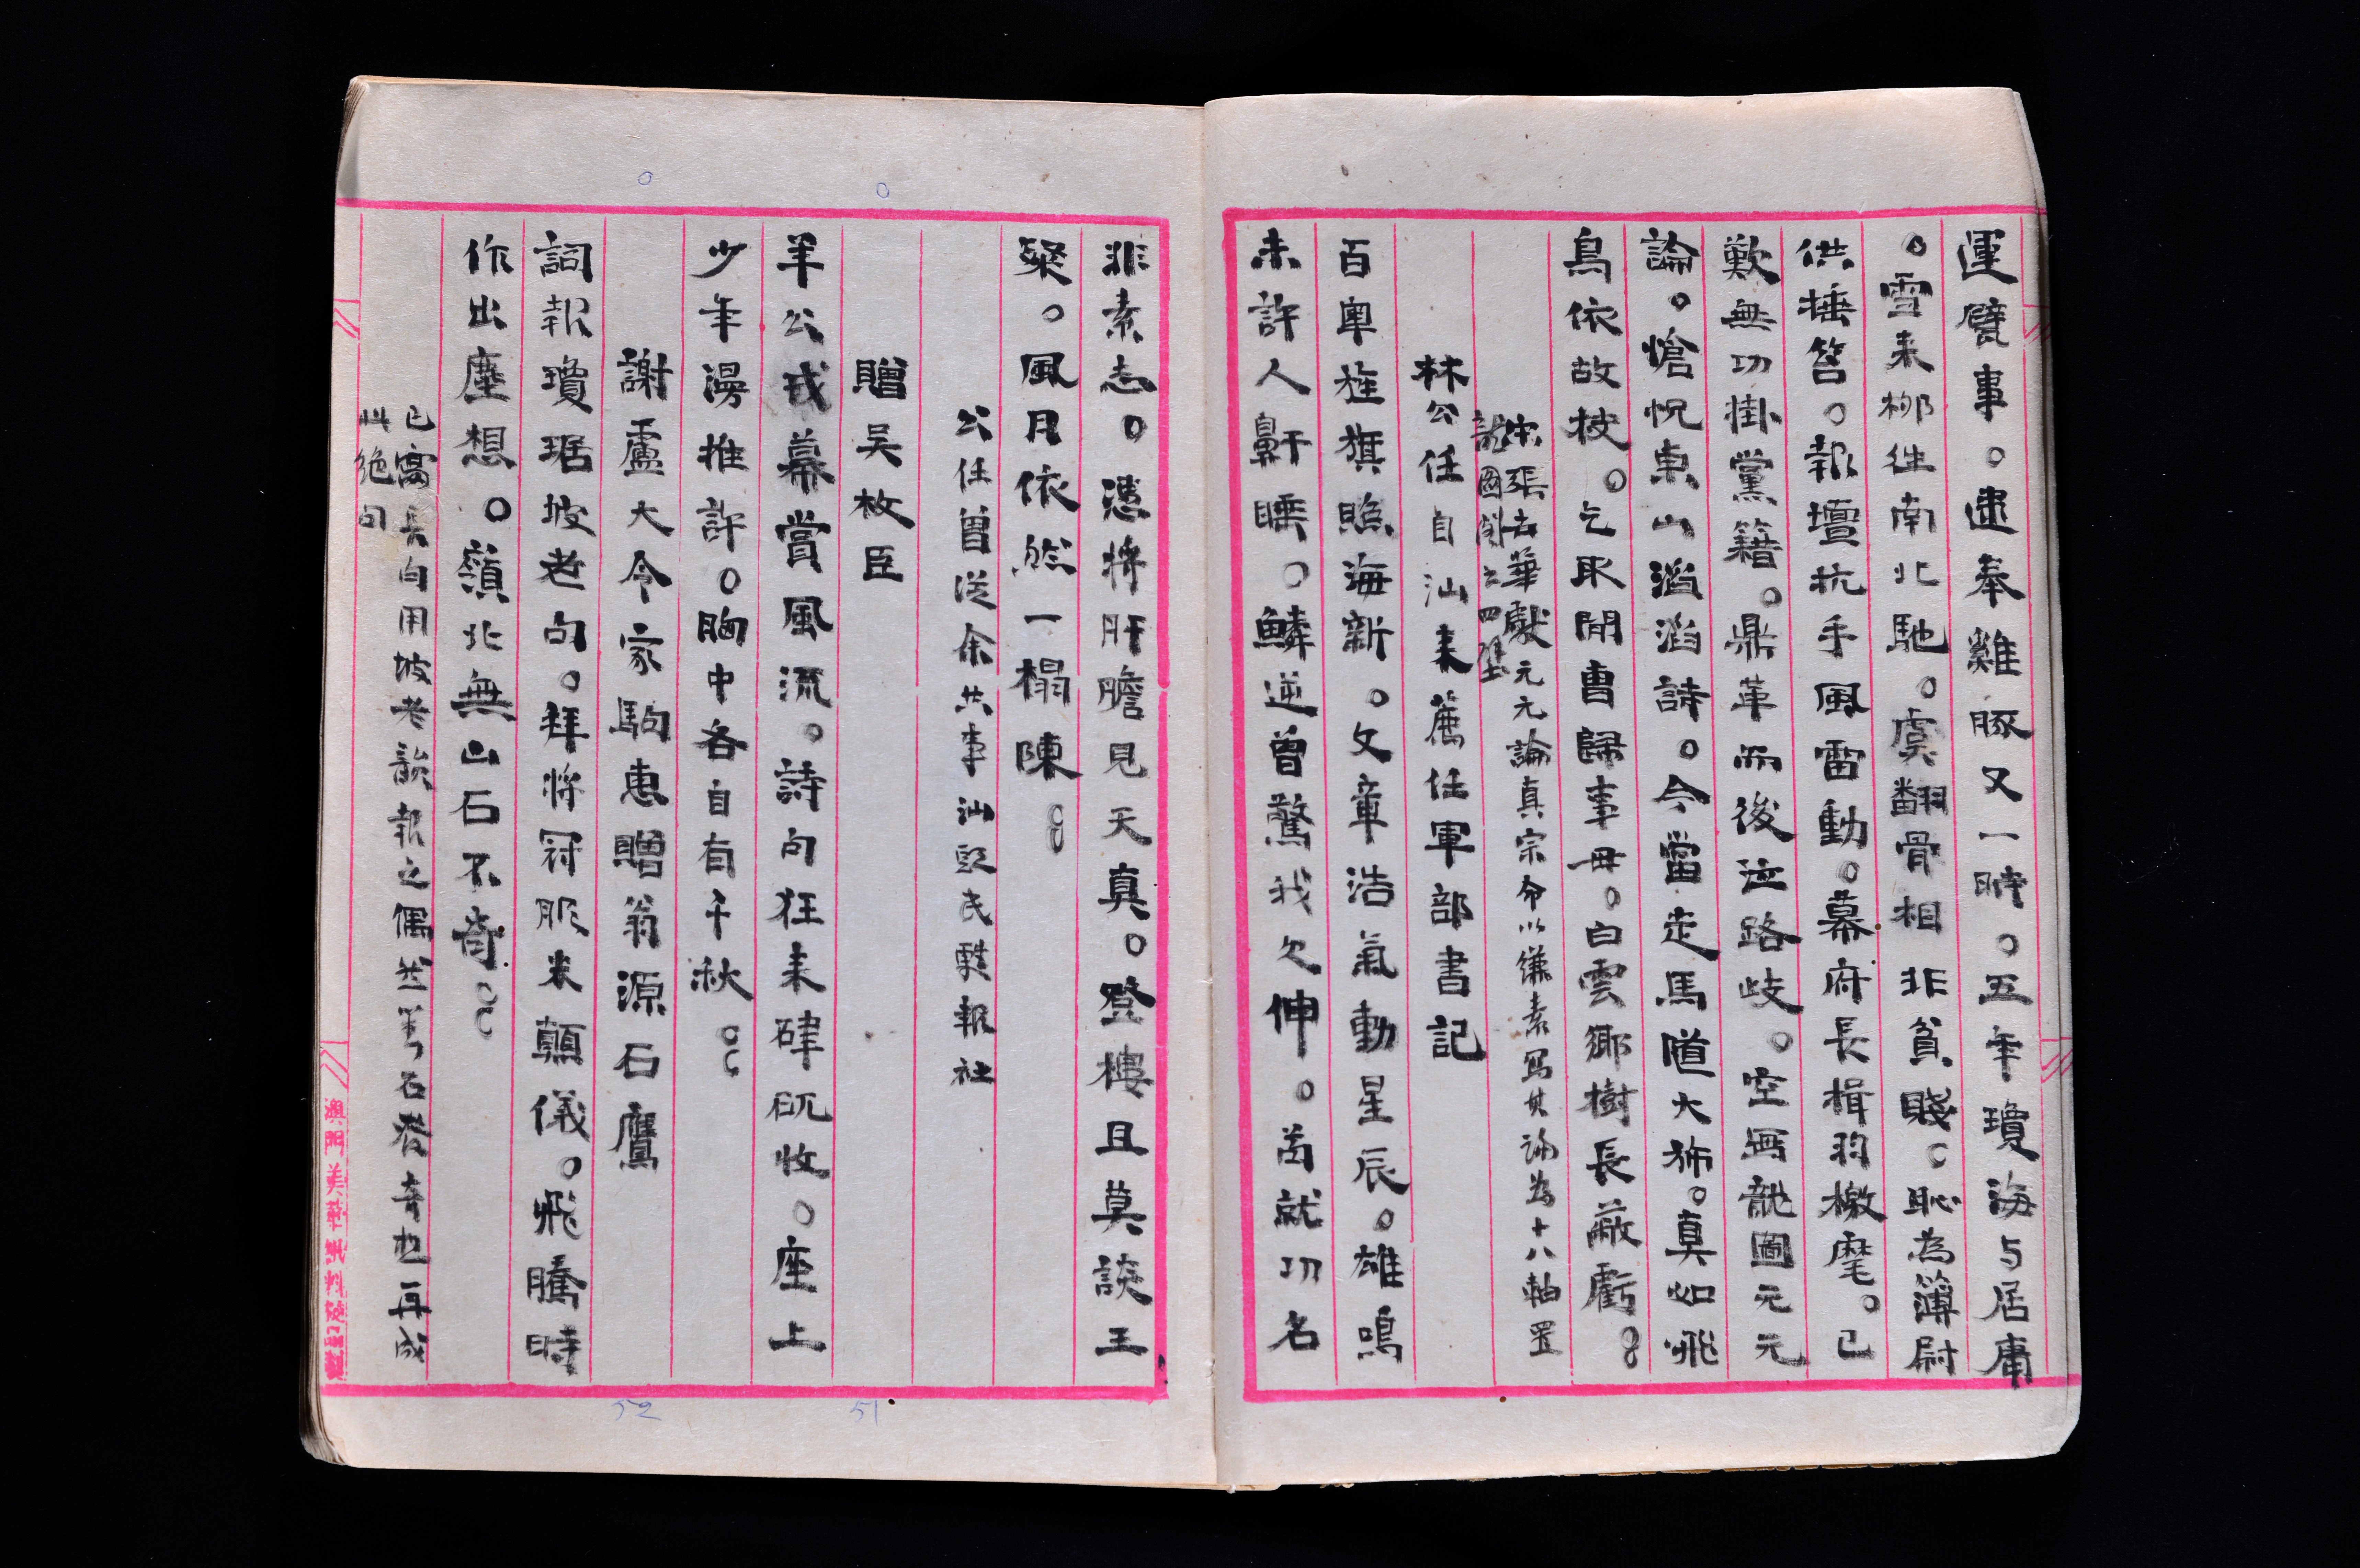 運甓事。逮奉雞豚又一時。五年瓊海与居庸
。雪来栁往南北馳。虞翻骨相非貧賤。恥為簿尉
供捶笞。報壇抗手風雷動。幕府長楫羽檄麾。已
歎無功掛黨籍。鼎革而後泣路岐。空寫龍圖元元
論。愴怳東山滔滔詩。今當走馬隨大斾。真如飛
鳥依故枝。乞取閒曹歸事毋。白雲鄉樹長蔽虧。
宋張去華獻元元論真宗命以縑素寫其論為十八軸置
龍圖閣之四壁
林公任自汕来薦任軍部書記
百粤旌旗照海新。文章浩氣動星辰。雄鳴
未許人鼾睡。鱗逆曾驚我欠伸。苟就功名
非素志。憑將肝膽見天真。登樓且莫談王
粲。風月依然一榻陳。
公任曾從余共事汕頭民甦報社
贈吴枚臣
羊公戎幕嘗風流。詩句狂来硉矹收。座上
少年漫推許。胸中各自有千秋。
謝盧大令家駒惠贈翁源石鷹
詞報瓊琚坡老句。拜將冠服米顛儀。飛騰時
作出塵想。嶺北無山石不奇。
已寫長句用坡老韻報之偶然美石聳奇也再成
此絕句
澳門美
51
52